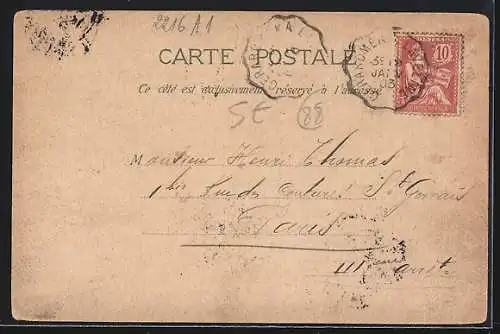 2216 A1
CARTE POSTALE
Ce côté est exclusivement réservé à l'adresse
POSTES
10
SE 88
Monsieur Henri Thomas
1 bis Rue des Coutures St Gervais
Paris
III